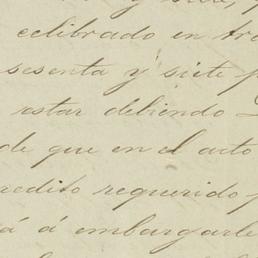 y siete,
celibrado en tra
sesenta y siete p
estar debiendo
de que en el acto
redito requerido p
á á embargarle